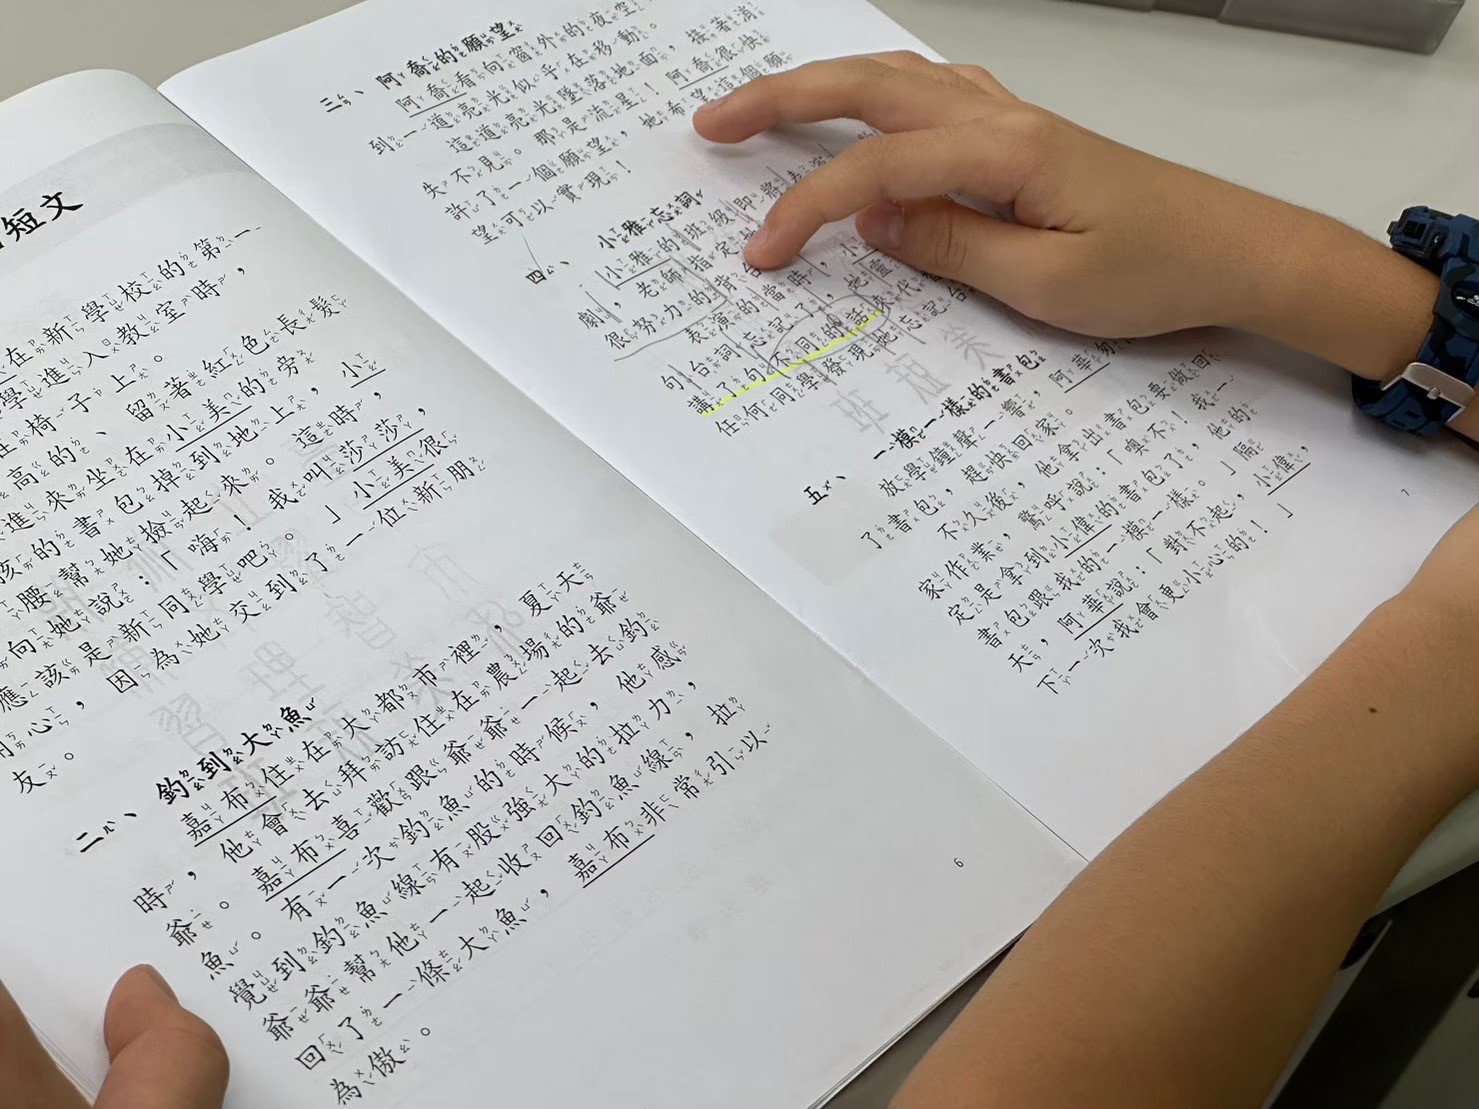 短文
在新學校的第一
學進入教室時，
椅子上。
高的、留著紅色長髮
進來坐在小美的旁
孩的書包掉到地上，小
腰幫她撿起來。這時，
向她說：「嗨！我叫莎莎，
應該是新同學吧。」小美很
心，因為她交到了一位新朋
友。
二、釣到大魚
嘉布住在大都市裡，夏天
時，他會去拜訪住在農場的爺
爺。嘉布喜歡跟爺爺一起去釣
魚。有一次釣魚的時候，他感
覺到釣魚線有股強大的拉力，
爺爺幫他一起收回釣魚線，拉
回了一條大魚，嘉布非常引以
為傲。
6
三、阿喬的願望
阿喬看向窗外的夜空
到一道亮光似乎在移動。
這道亮光墜落地面，接著消
失不見。那是流星！阿喬很快
許了一個願望，她希望這個願
望可以實現！
四、小雅忘詞
小雅的班級即將表演
劇，老師指定
很努力的背台
表演的當時，小
句台詞忘記了，他靈
講了句不同的話來代
任何同學發現她忘記台
五、一模一樣的書包
放學鐘聲一響，阿華
了書包，趕快回家。
不久後，他拿出書包要做回
家作業，驚呼說：「噢不！我一
定是拿到小偉的書包了，他的
書包跟我的一模一樣。」隔
天，阿華說：「對不起，小偉，
下一次我會更小心的！」
7